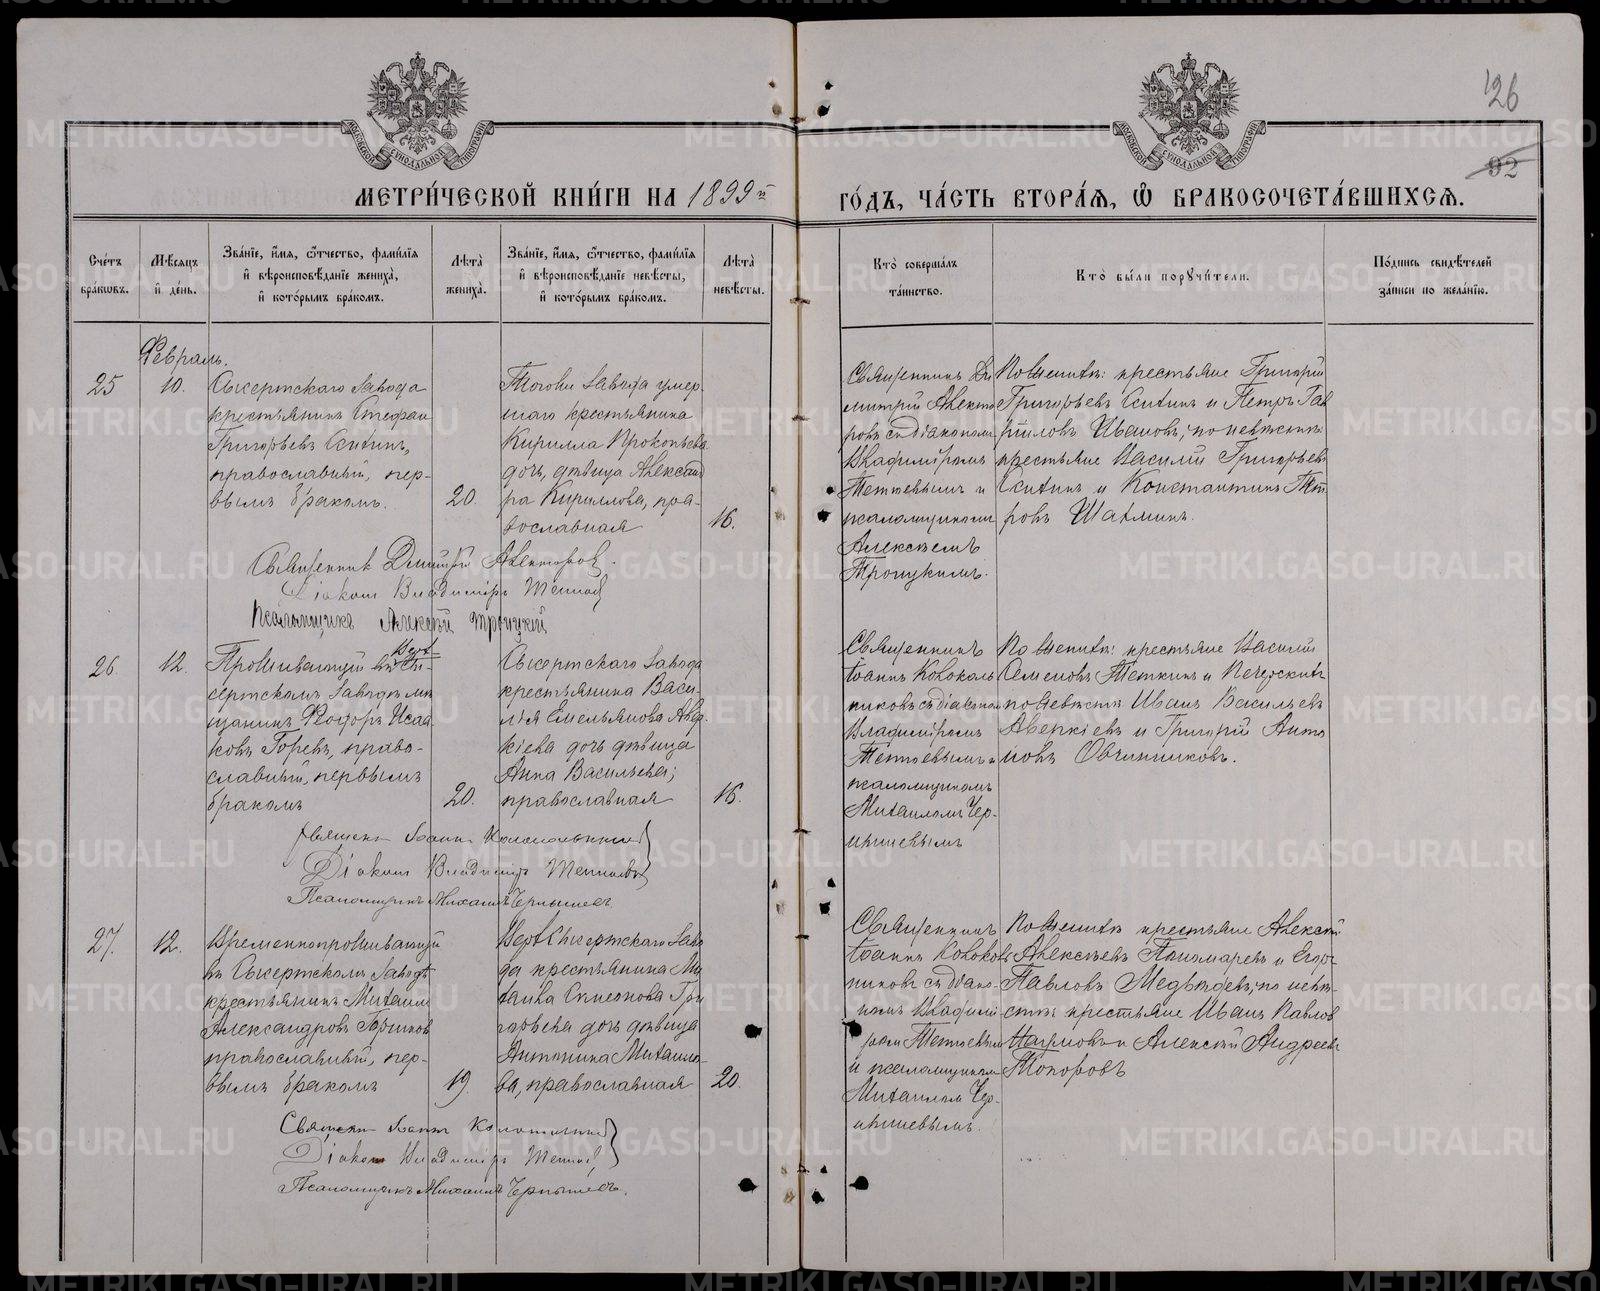 126
92
МОСКОВСКОЙ СУНОДАЛЬНОЙ ТИПОГРАФІИ
МОСКОВСКОЙ СУНОДАЛЬНОЙ ТИПОГРАФІИ
МЕТРИ́ЧЕСКОЙ КНИ́ГИ НА 1899й
ГО́ДЪ, ЧА́СТЬ ВТОРА́Я, Ѡ҆ БРАКОСОЧЕТА́ВШИХСЯ.
Сче́тъ бра́кѡвъ.
Мѣ́сяцъ и҆ де́нь.
Зва́нїе, и҆́мя, ѻ҆́тчество, фами́лїя и҆ вѣроисповѣ́данїе жениха̀, и҆ кото́рымъ бра́комъ.
Лѣта̀ жениха̀.
Зва́нїе, и҆́мя, ѻ҆́тчество, фами́лїя и҆ вѣроисповѣ́данїе невѣ́сты, и҆ кото́рымъ бра́комъ.
Лѣта̀ невѣ́сты.
Кто̀ соверша́лъ та́инство.
Кто̀ бы́ли порꙋчи́тели.
По́дпись свидѣ́телей за́писи по жела́нїю.
Февраль.
25
10.
Сысертскаго Завода
крестьянинъ Стефан
Григорьевъ Ситинъ,
православный, пер-
вымъ бракомъ.
20.
Тогоже Завода умер-
шаго крестьянина
Кирилла Прокопьева
дочь, дѣвица Александ
ра Кириллова, пра-
вославная
16.
Священникъ Ди
митрій Авкто
ровъ съ діаконом
Владиміромъ
Тетюевымъ и
псаломщикомъ
Алексѣемъ
Троицкимъ.
По женихѣ: крестьяне Григорій
Григорьевъ Ситинъ и Петръ Гав
риловъ Ивановъ; по невѣстѣ:
крестьяне Василій Григорьевъ
Ситинъ и Константинъ Пет
ровъ Шахминъ.
Священник Димитрій Авкторов.
Діакон Владиміръ Тетюев
Псаломщикъ Алексѣй Троицкій
26.
12.
Проживающій въ Верх-Сы-
сертскомъ Заводѣ мѣ
щанинъ Ѳедоръ Исаа
ковъ Горевъ, право-
славный, первымъ
бракомъ
20.
Сысертскаго Завода
крестьянина Васи-
лія Емельянова Авер
кіева дочь дѣвица
Анна Васильева;
православная
16.
Священникъ
Іоаннъ Колоколь
никовъ съ діакономъ
Владиміромъ
Тетюевымъ и
псаломщикомъ
Михаиломъ Чер-
нышевымъ
По женихѣ: крестьяне Василій
Семеновъ Теткинъ и
по невѣстѣ Иванъ Васильевъ
Аверкіевъ и Григорій Анто
новъ Овчинниковъ.
Священ. Іоаннъ Колокольников
Діакон Владиміръ Тетюевъ
Псаломщикъ Михаилъ Чернышевъ.
27.
12.
Временнопроживающій
въ Сысертскомъ Заводѣ
крестьянинъ Михаилъ
Александровъ Горшков
православный, пер-
вымъ бракомъ
19.
Верх-Сысертскаго Заво
да крестьянина Ми
хаила Симеонова Гри
горьева дочь дѣвица
Антонина Михаило-
ва, православная
20.
Священникъ
Іоаннъ Колоколь
никовъ съ діако-
номъ Владимі
ромъ Тетюевым
и псаломщикомъ
Михаиломъ Чер-
нышевымъ.
По женихѣ крестьяне Алексѣй
Алексѣевъ Пономаревъ и Егоръ
Павловъ Медвѣдевъ; по невѣ-
стѣ: крестьяне Иванъ Павлов
и Алексѣй Андреевъ
Топоровъ
Священ. Іоаннъ Колокольников
Діакон Владиміръ Тетюев
Псаломщикъ Михаилъ Чернышевъ.
METRIKI.GASO-URAL.RU